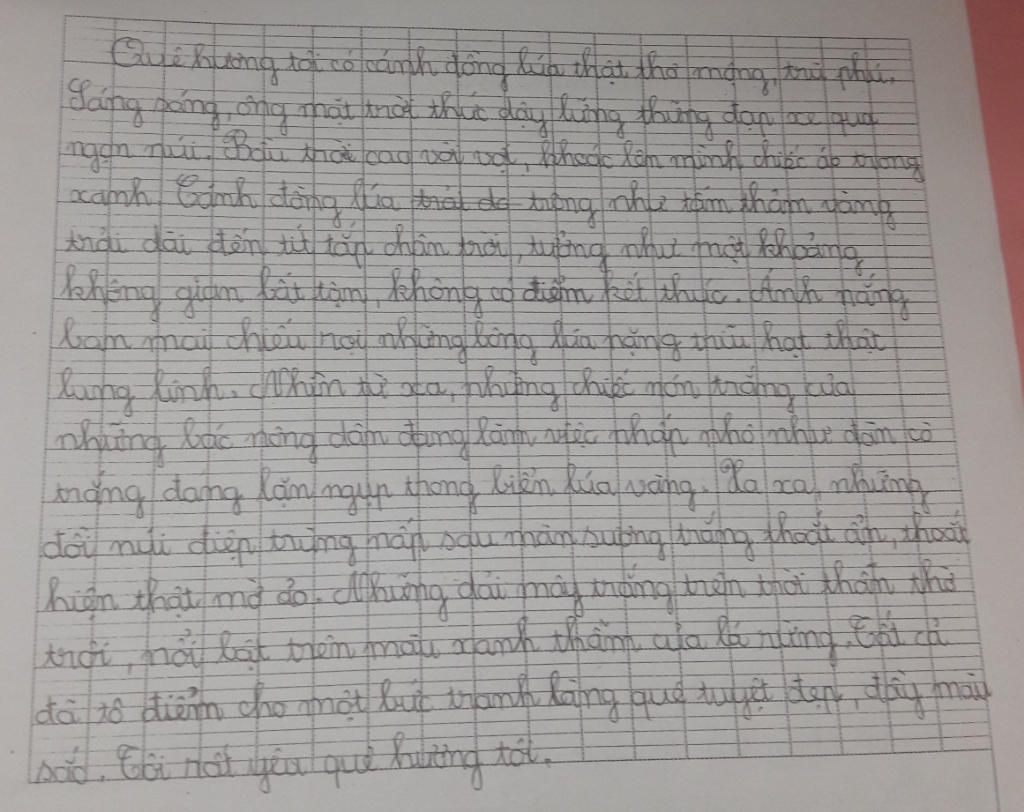 Quê hương tôi có cánh đồng lúa thật thơ mộng, trù phú.
Sáng sáng, ông mặt trời thức dậy lững thững đạp xe qua
ngọn núi. Bầu trời cao vời vợi, khoác lên mình chiếc áo trong
xanh. Cánh đồng lúa trông như tấm thảm vàng
trải dài đến tít tắp chân trời, tưởng như một khoảng
không gian bất tận, không có điểm kết thúc. Ánh nắng
ban mai chiếu rọi những bông lúa nặng trĩu hạt thật
lung linh. Nhìn từ xa, những chiếc nón trắng của
những bác nông dân đang làm việc nhấp nhô như đàn cò
trắng đang lặn ngụp trong biển lúa vàng. Xa xa, những
đồi núi điệp trùng mấp sau màn sương trắng thoắt ẩn, thoắt
hiện thật mờ ảo. Những dải mây trắng trên trời thẩn thờ
trôi, nổi bật trên màu xanh thẫm của lá rừng. Tất cả
đã tô điểm cho một bức tranh làng quê tuyệt đẹp, đầy màu
sắc. Tôi rất yêu quê hương tôi.